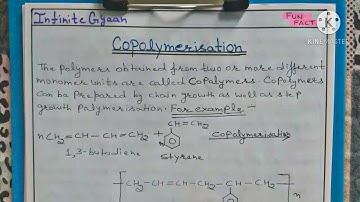 Infinite Gyaan
FUN FACT
KINEMASTER
Copolymerisation
The polymers obtained from two or more different
monomer units are called Copolymers. Copolymers
can be prepared by chain growth as well as step
growth Polymerisation. For example :-
CH=CH₂
nCH₂=CH-CH=CH₂ + Copolymerisation
1,3-butadiene Styrene
[CH₂-CH=CH-CH₂-CH-CH₂]n